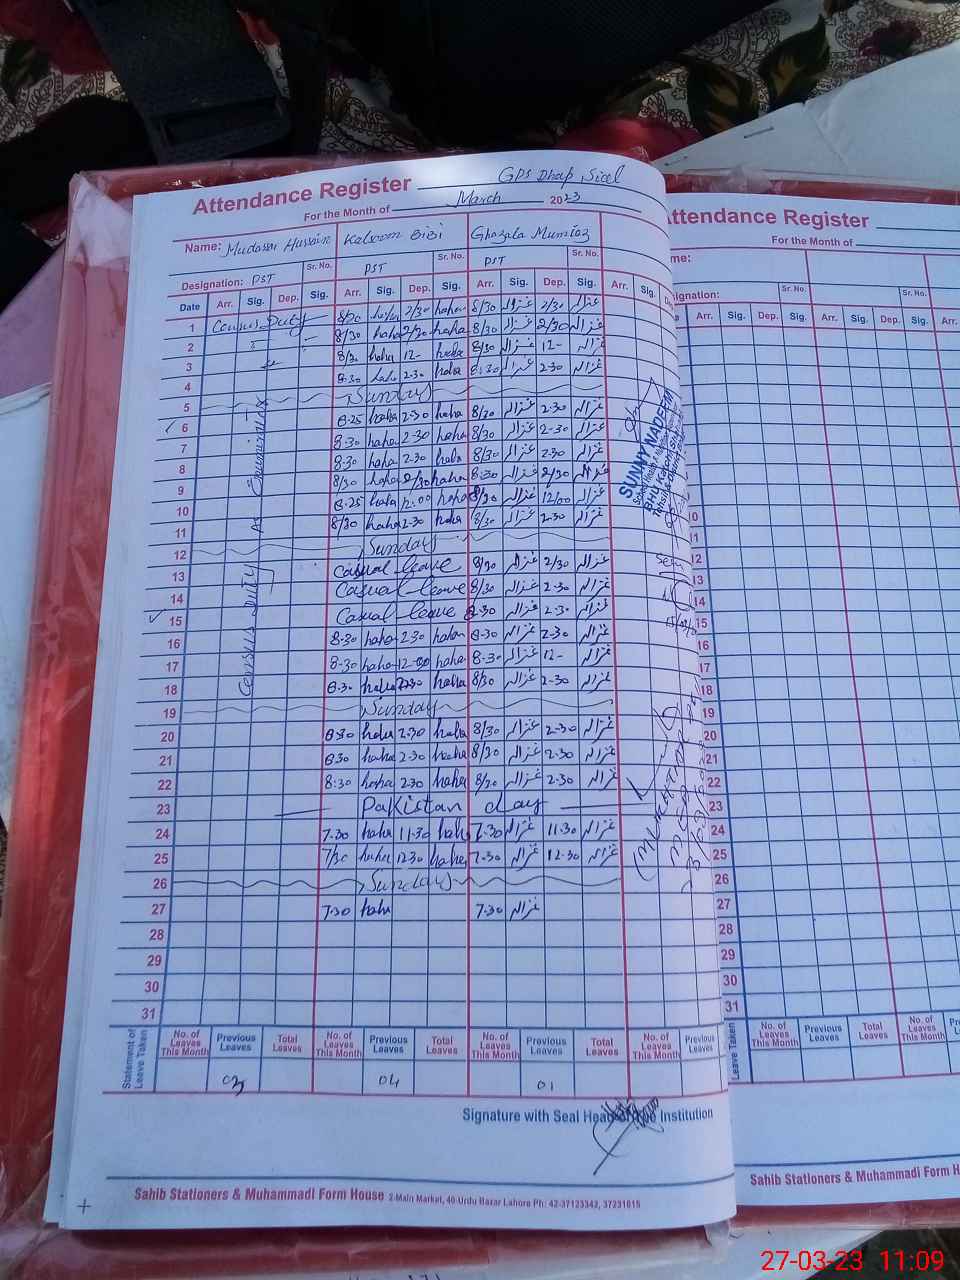 Attendance Register GPS Dhap Sial
For the Month of March 2023
Name: Mudassar Hussain Kalsoom BiBi Ghazala Mumtaz
Designation: PST Sr. No. PST Sr. No. PST Sr. No.
Date Arr. Sig. Dep. Sig. Arr. Sig. Dep. Sig. Arr. Sig. Dep. Sig. Arr. Sig.
1 Census Duty 8/30 haha 2/30 haha 8/30 غزالہ 2/30 غزالہ
2 8/30 haha 2/30 haha 8/30 غزالہ 2/30 غزالہ
3 8/30 haha 12- haha 8/30 غزالہ 12- غزالہ
4 8-30 haha 2-30 haha 8:30 غزالہ 2-30 غزالہ
5 Sunday
6 8-25 haha 2-30 haha 8/30 غزالہ 2-30 غزالہ
7 8-30 haha 2-30 haha 8/30 غزالہ 2-30 غزالہ
8 8-30 haha 2-30 haha 8/30 غزالہ 2-30 غزالہ
9 8/30 haha 2/30 haha 8-30 غزالہ 2/30 غزالہ
10 8-25 haha 12-00 haha 8/30 غزالہ 12/00 غزالہ
11 8/30 haha 2-30 haha 8/30 غزالہ 2-30 غزالہ
12 Sunday
13 Casual leave 8/30 غزالہ 2/30 غزالہ
14 Casual leave 8/30 غزالہ 2-30 غزالہ
15 Casual leave 8-30 غزالہ 2-30 غزالہ
16 8-30 haha 2-30 haha 8-30 غزالہ 2-30 غزالہ
17 8-30 haha 12-00 haha 8-30 غزالہ 12- غزالہ
18 8-30 haha 2-30 haha 8/30 غزالہ 2-30 غزالہ
19 Sunday
20 8-30 haha 2-30 haha 8/30 غزالہ 2-30 غزالہ
21 8-30 haha 2-30 haha 8/30 غزالہ 2-30 غزالہ
22 8:30 haha 2-30 haha 8/30 غزالہ 2-30 غزالہ
23 Pakistan day
24 7-30 haha 11-30 haha 7-30 غزالہ 11-30 غزالہ
25 7/30 haha 12-30 haha 7-30 غزالہ 12-30 غزالہ
26 Sunday
27 7-30 haha 7-30 غزالہ
28
29
30
31
Census Duty As
SUNNY NADEEM
Statement of Leave Taken
No. of Leaves This Month Previous Leaves Total Leaves No. of Leaves This Month Previous Leaves Total Leaves No. of Leaves This Month Previous Leaves Total Leaves No. of Leaves This Month Previous Leaves
03 04 01
Signature with Seal Head of The Institution
Sahib Stationers & Muhammadi Form House 2-Main Market, 40-Urdu Bazar Lahore Ph: 42-37123342, 37231615
Attendance Register
For the Month of
Sr. No. Sr. No.
Arr. Sig. Dep. Sig. Arr. Sig. Dep. Sig. Arr.
10
11
12
13
14
15
16
17
18
19
20
21
22
23
24
25
26
27
28
29
30
31
No. of Leaves This Month Previous Leaves Total Leaves No. of Leaves This Month
Signature
Sahib Stationers & Muhammadi Form
27-03-23 11:09